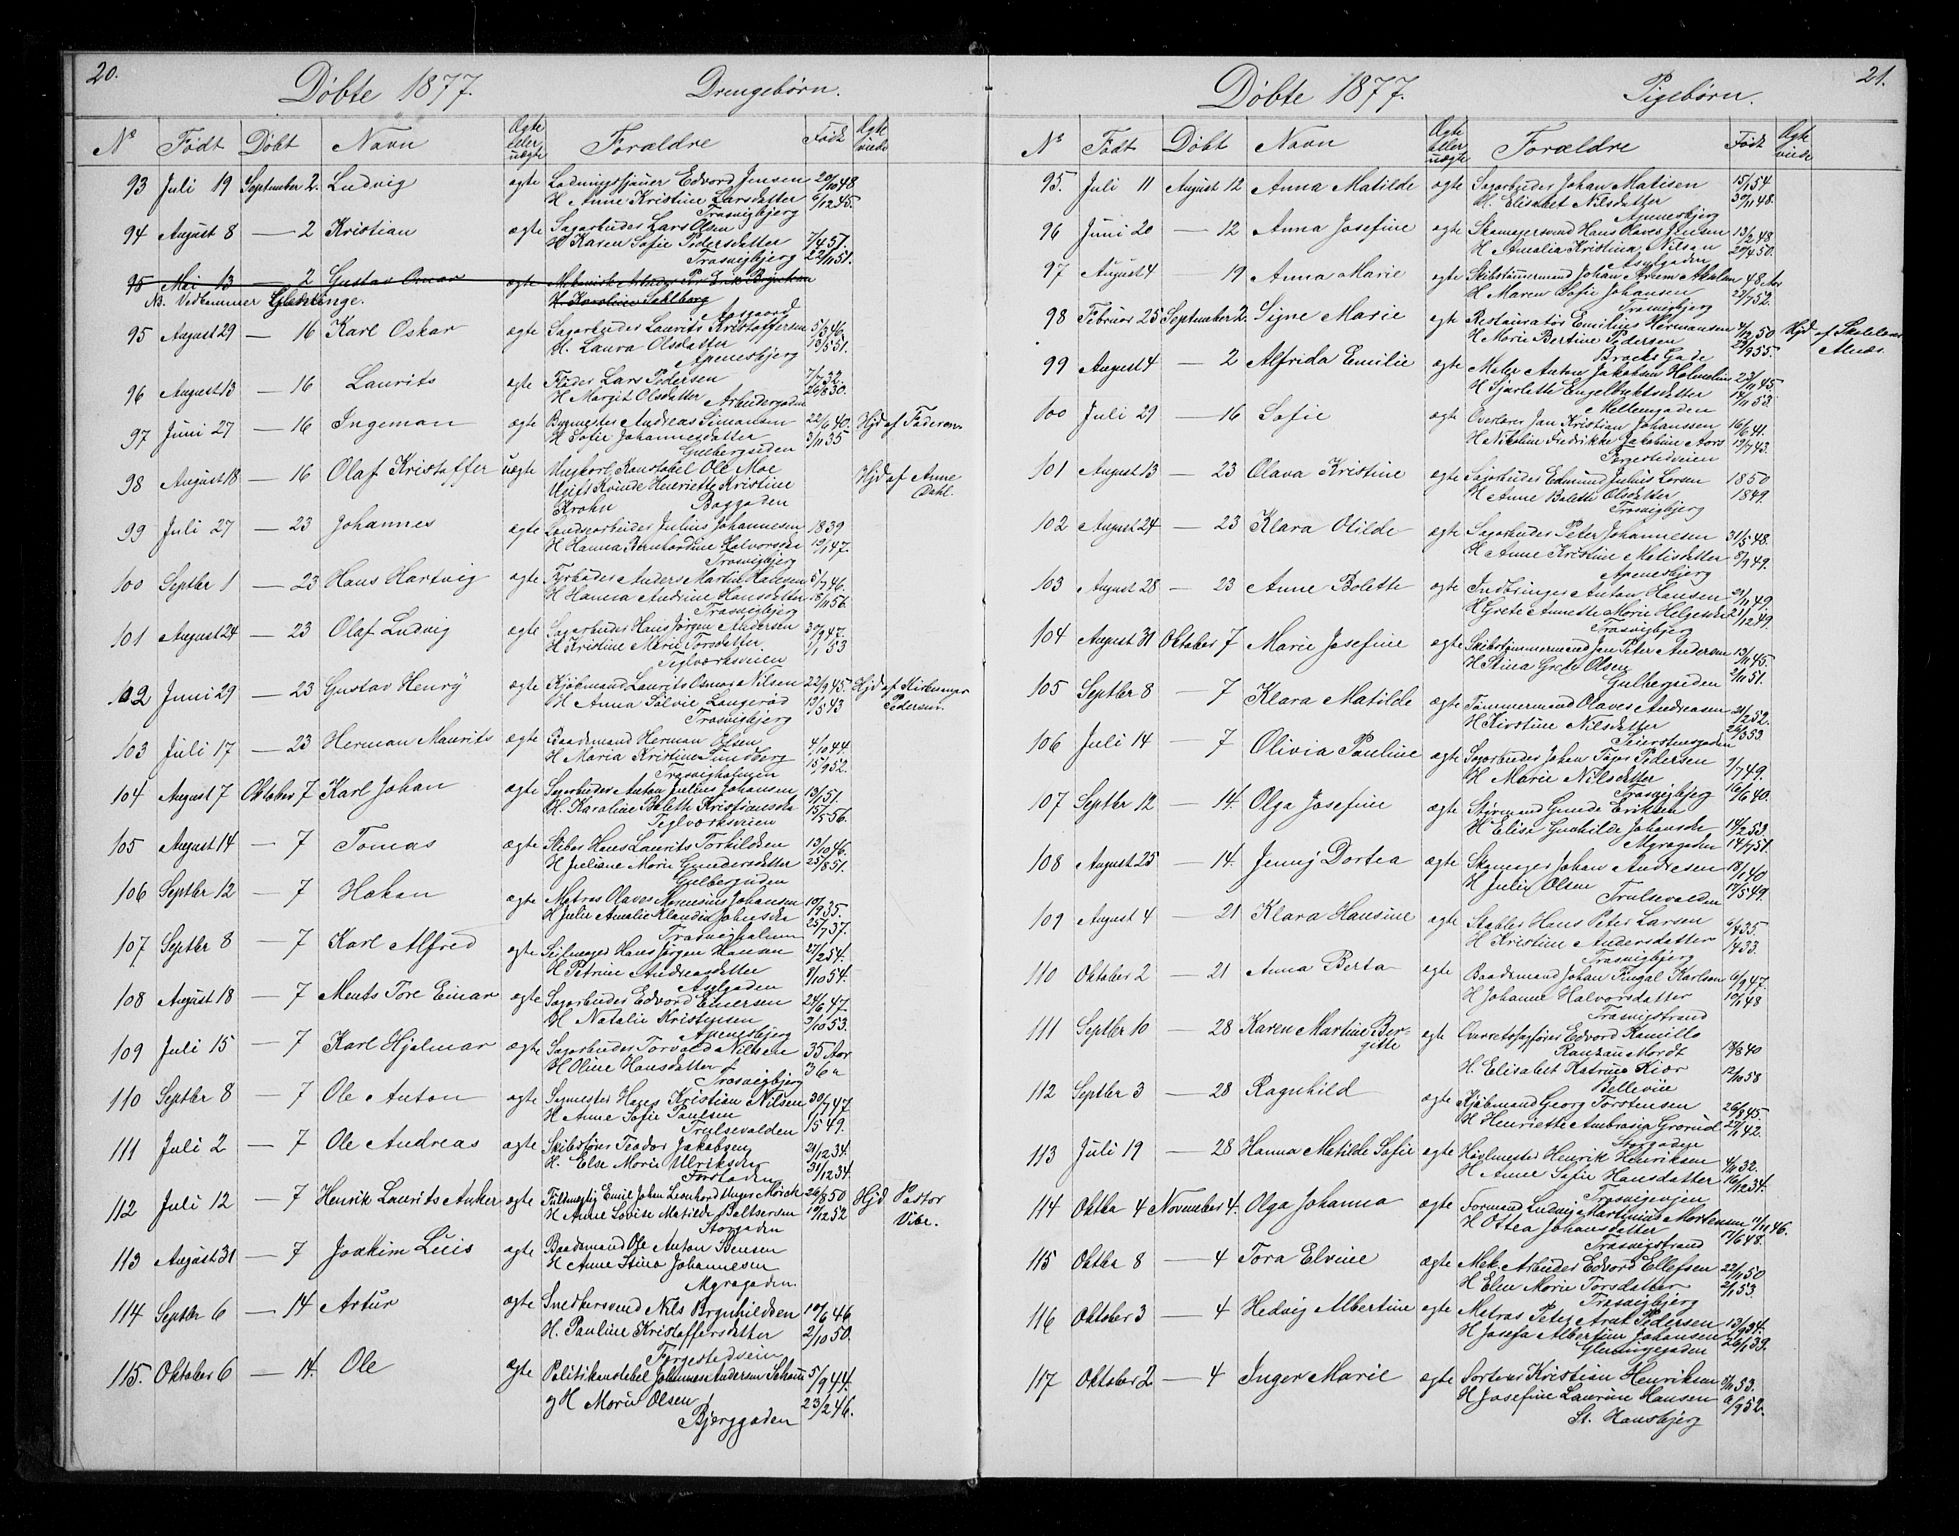 20.
Döbte 1877. Drengebörn.
No Födt Döbt Navn Ægte eller uægte Forældre Födt
93 Juli 19 September 2. Ludvig ægte Edvard Jensen 20/10 48
H Anne Kristine Larsdatter 6/12 45.
Træsvigbjerg
94 August 8 — 2 Kristian ægte Sagarbeider Lars Olsen
H Karen Sofie Pedersdatter 7/4 57.
Træsvigbjerg 22/11 51.
95 Mai 13 — 2 Gustav ægte
H. Karoline Sahlberg
95 August 29 — 16 Karl Oskar ægte Sagarbeider Laurits Kristoffersen 5/3 46.
H. Laura Olsdatter 13/5 51.
Apenesbjerg
96 August 13 — 16 Laurits ægte Lars Pedersen 7/7 32.
H Margit Olsdatter 26/8 30.
Arbeidergaden
97 Juni 27 — 16 Ingeman ægte Bygmester Andreas Simensen 22/6 40. Hjd af Faderen
H Sofie Johannesdatter 3/11 35
Gulbergsiden
98 August 18 — 16 Olaf Kristoffer uægte Ungkarl Konstabel Ole Moe Hjd af Anne
Ugift Kvinde Henriette Kristine Dahl.
Krohn Baggaden
99 Juli 27 — 23 Johannes ægte Julius Johannesen 1839
H Hanna Bernhardine Halvorsda 19/1 47.
Træsvigbjerg
100 Septbr 1 — 23 Hans Hartvig ægte Fyrböder Anders Martin Hansen 5/7 46.
H Hanna Andrine Hansdatter 18/11 56.
Træsvigbjerg
101 August 24 — 23 Olaf Ludvig ægte Sagarbeider Hans Jörgen Andersen 30/9 47.
H Kristine Marie Torsdatter. 7/1 53
Teglværksveien
102 Juni 29 — 23 Gustav Henry ægte Kjöbmand Laurits Osmar Nilsen 22/9 45. Hjd af
H Anna Sölvie Langeröd 19/5 43 Pedersen.
Træsvigbjerg
103 Juli 17 — 23 Herman Maurits ægte Baadsmand Herman Elsen 4/10 44.
H Maria Kristine Sundberg 15/9 52.
Træsvigholmen
104 August 7 Oktober 7 Karl Johan ægte Sagarbeider Anton Julius Johansen 13/ 51.
H. Karoline Bolette Kristiansda 15/5 56.
Teglværksveien
105 August 14 — 7 Tomas ægte Hans Laurits Torkildsen 13/10 46.
H Juliane Marie Gundersdatter 25/8 51.
Gulbergsiden
106 Septbr 12 — 7 Hakan ægte Matros Olaves Johansen 10/1 35.
H Julie Amalie Klaudia Johansda 25/7 37.
Træsvigholmen
107 Septbr 8 — 7 Karl Alfred ægte Seilmager Hans Jörgen Hansen 27/2 54.
H Petrine Andreasdatter 8/10 54.
Asylgaden
108 August 18 — 7 Ments Tore Einar ægte Sagarbeider Edvard Einersen 24/6 47
H Natalie Kristensen 3/10 53.
Apenesbjerg
109 Juli 15 — 7 Karl Hjalmar ægte Sagarbeider Torvald Nilsen 35 Aar
H Oline Hansdatter 36 "
Træsvigbjerg
110 Septbr 8 — 7 Ole Anton ægte Sagmester Hans Kristian Nilsen 30/1 47.
H Anne Sofie Paulsen 15 49.
Trulsevalden
111 Juli 2 — 7 Ole Andreas ægte Skibsförer Teodor Jakobsen 21/12 34.
H. Else Marie Ulriksda 31/12 34.
Forstaden
112 Juli 12 — 7 Henrik Laurits Anker ægte Fuldmægtig Emil Johan Leonhard Unger Mörch 26/8 50 Hjd Pastor
H Anne Lovise Matilde Baltsersen 19/12 52 Vibe.
Storgaden
113 August 31 — 7 Joakim Luis ægte Baadsmand Ole Anton Svensen
H Anne Stina Johannesen
Agragaden.
114 Septbr 6 — 14 Artur ægte Snekkersvend Nils Brynhildsen 10/6 46
H. Pauline Kristoffersdatter 2/10 50.
Torgestedveien
115. Oktober 6 — 14. Ole ægte Politikonstabel Johannes Andersen 5/9 44.
og H Marie Olsen 23/2 46.
Bjerggaden
21.
Döbte 1877. Pigebörn.
No Födt Döbt Navn Ægte eller uægte Forældre Födt
95. Juli 11 August 12 Anna Matilde ægte Sagarbeider Johan Matisen 15/1 54.
H. Elisabet Nilsdatter 30/11 48.
Apenesbjerg
96 Juni 20 — 12 Anna Josefine ægte Skomagersvend Hans Olaves Jensen 13/2 48.
H Amalia Kristina Nilsen 20/4 50.
Asylgaden
97 August 4 — 19 Anna Marie ægte Skibstömmermand Johan 48 Aar
H Maren Sofie Johansen 22/7 52.
Træsvigbjerg
98 Februar 25 September 2. Signe Marie ægte Restauratör Emilius Hermansen 4/12 50 Hjd af
H Marie Bertine Pedersen 28/9 55.
Brochs Gade
99 August 4 — 2 Alfrida Emilie ægte Maler Anton Jakobsen 23/11 45
H Sjarlotte Engelbrektsdatter 14/11 53.
Mellemgaden
100 Juli 29 — 16 Sofie ægte Overlærer Jan Kristian Johanssen 16/6 41.
H Nikoline Fredrikke Jakobine 19/7 43.
Torgestedveien
101 August 13 — 23 Olava Kristine ægte Sagarbeider Edmund Julius Larsen 1850
H Anne Bolette Olsdatter 1849.
Træsvigbjerg
102 August 24 — 23 Klara Otilde ægte Sagarbeider Peter Johannesen 31/5 48.
H Anne Kristine Matisdatter 8/9 49.
Apenesbjerg
103 August 28 — 23 Anne Bolette ægte Indbringer Anton Hansen 21/11 49.
H Grete Annette Marie Helgesda 22/12 49.
Træsvigbjerg
104 August 31 Oktober 7 Marie Josefine ægte Skibstömmermand Jan Peter Andersen 13/11 45.
H Stina Grete Olsen 2/11 51.
Gulbergsiden
105 Septbr 8 — 7 Klara Matilde ægte Tömmermand Olaves Andreasen 21/2 52.
H Kirstine Nilsdatter 26/3 53.
Seierstensgaden
106 Juli 14 — 7 Olivia Pauline ægte Sagarbeider Johan Pedersen 9/7 49.
H Marie Nilsdatter 16/6 40.
Træsvigbjerg
107 Septbr 12 — 14. Olga Josefine ægte Styrmand Gunde Eriksen 14/2 53.
H Elise Gunhilde Johansda 14/7 51.
Agragaden
108 August 25 — 14. Jenny Dortea ægte Skomager Johan Andresen 18/1 40
H Julie Olsen 17/5 49.
Trulsevalden
109 August 4 — 21 Klara Hansine ægte Stabler Hans Peter Larsen 6/4 35.
H Kristine Andersdatter 1433.
Træsvigbjerg
110 Oktober 2 — 21 Anna Berta ægte Baadsmand Johan Fingal Karlsen 6/9 47.
H Johanne Halvorsdatter 10/1 48
Træsvigstrand
111 Septbr 10 — 28 Karen Martine Ber- ægte Overretssagförer Edvard Kamillo
gitte Rantzau Mordt 18/8 40
H. Elisabet Katrine Kiær 12/10 58
Bellevüe
112 Septbr 3 — 28 Ragnhild ægte Kjöbmand Georg Torstensen 26/8 45.
H Henriette Ambrosia Grörud 27/1 42.
Storgaden
113 Juli 19 — 28 Hanna Matilde Sofie ægte Henrik Henriksen 4/11 32.
H Anne Sofie Hansdatter 16/12 34.
Træsvigveien
114 Oktbr 4 November 4. Olga Johanna ægte Formand Ludvig Martinius Mortensen 11/11 46.
H Ottea Johansdatter 17/6 48.
Træsvigstrand
115 Oktbr 8 — 4 Tora Elvine ægte Mek. Arbeider Edvard Ellefsen 22/11 50
H Elen Marie Torsdatter 21/1 53.
Træsvigbjerg
116 Oktober 3 — 4 Hedvig Albertine ægte Matros Peter Arnt Pedersen 13/9 34.
H Josefa Albertine Johansen 26/1 39.
Glemmegaden
117 Oktober 2 — 4 Inger Marie ægte Kristian Henriksen 3/11 53.
H Josefine Laurine Hansen 9/9 52.
St. Hansbjerg